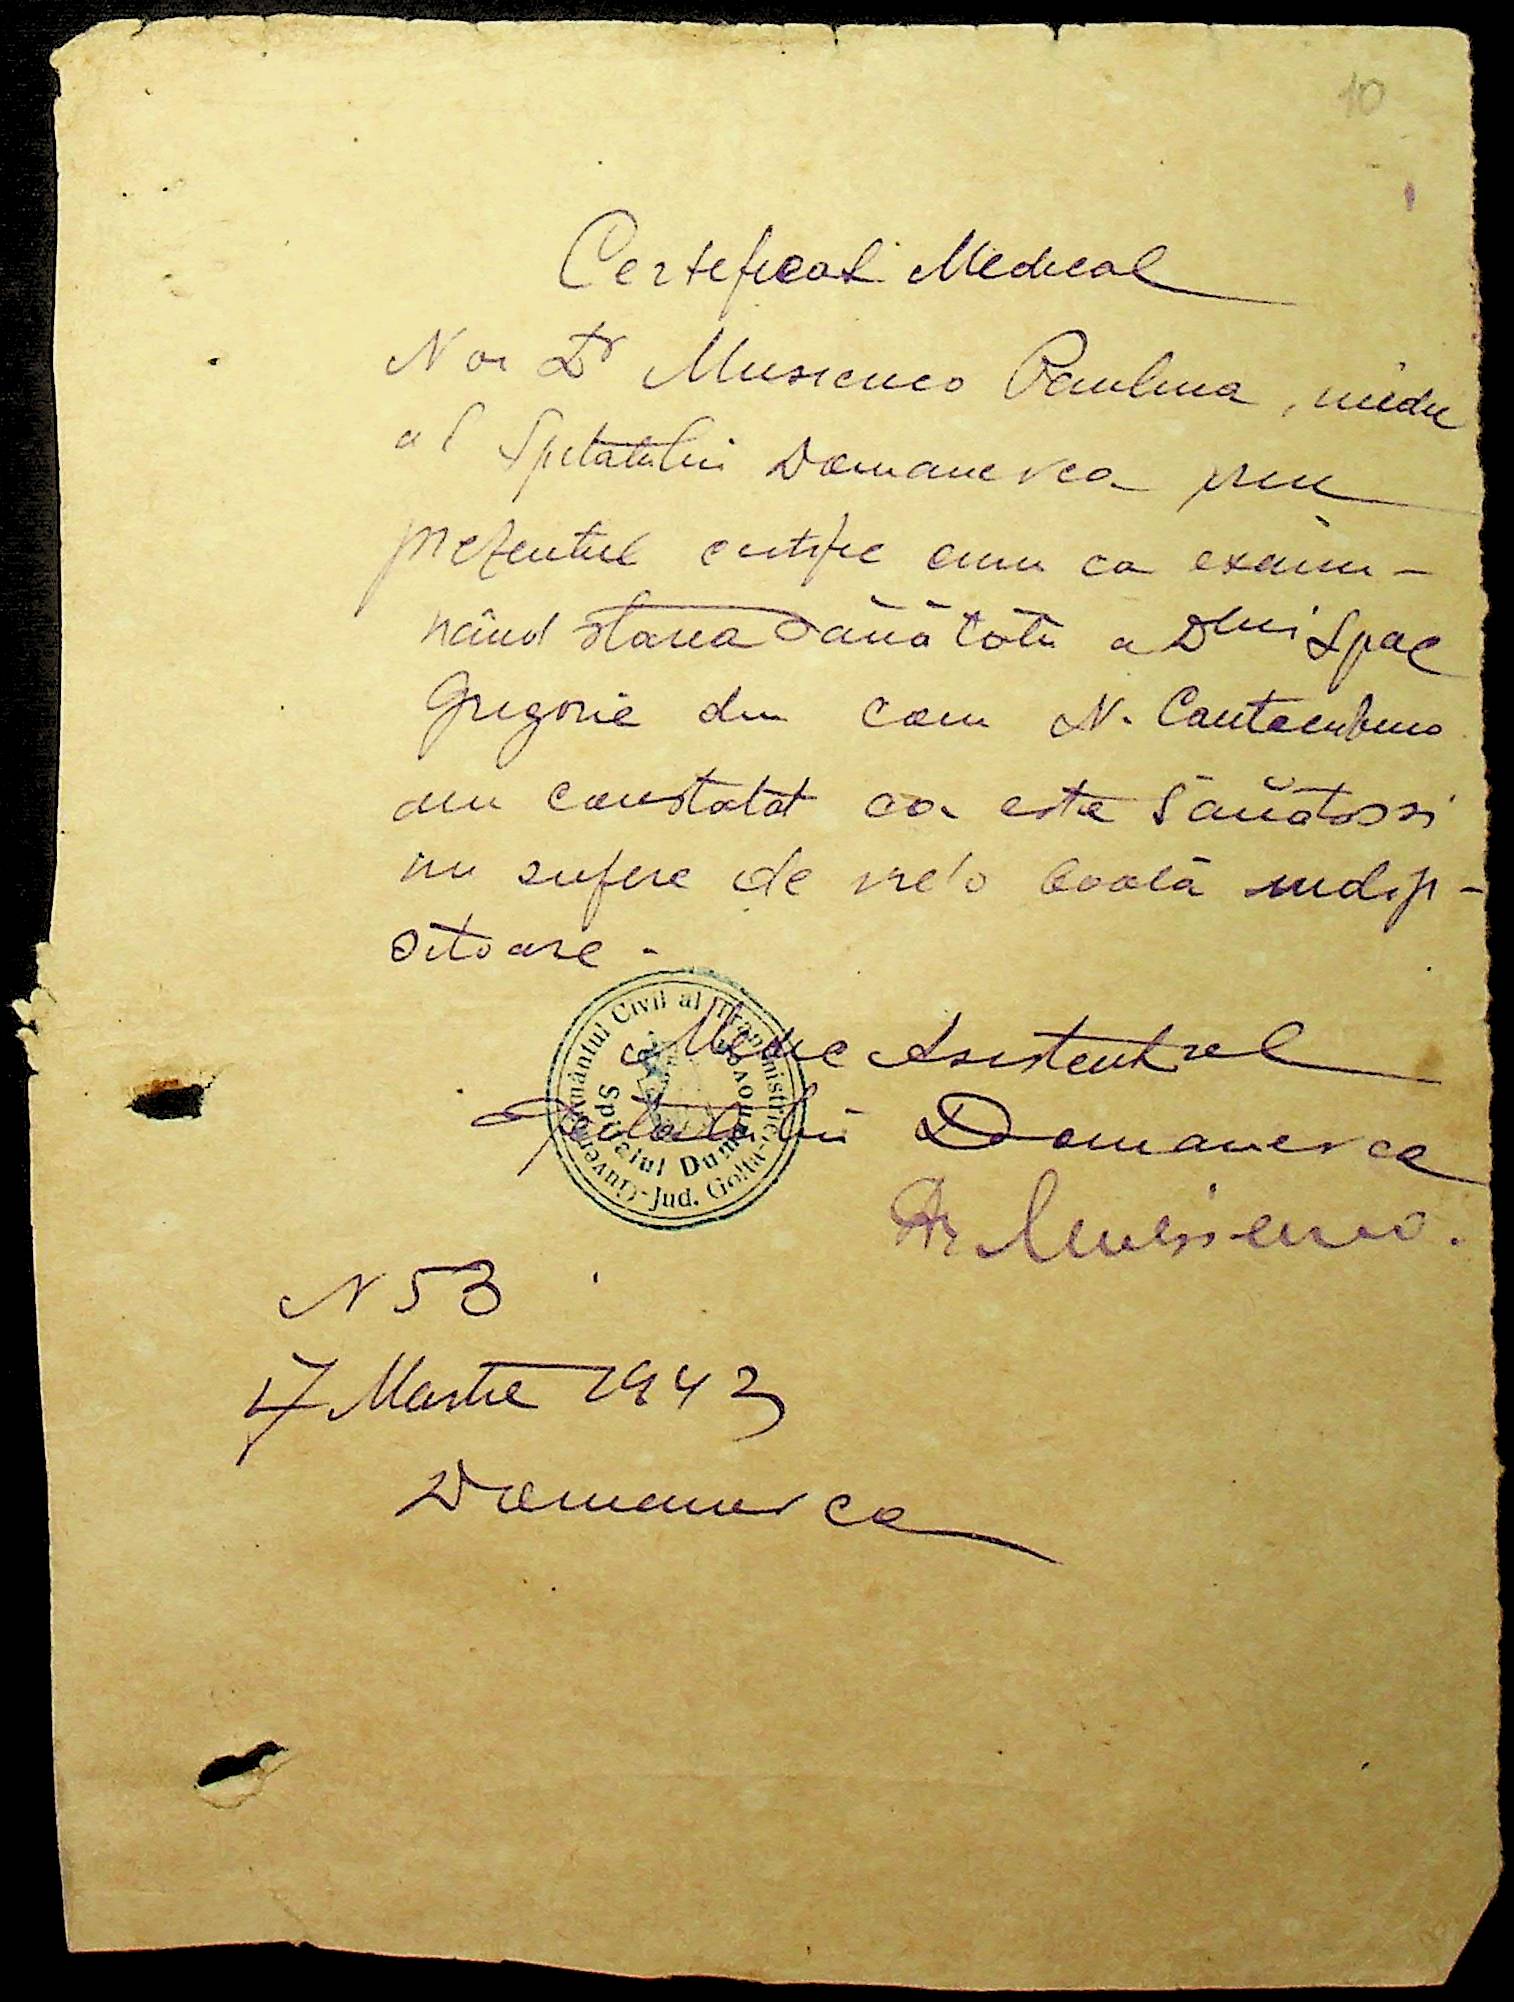 10
Certificat Medical
Noi Dr Musienco Paulina, medic
al Spitalului Domanevca prin
prezentul certific cum ca exami-
nând starea sănătătii a Dlui Spac
Grigorie din com N. Cantacuzino
am constatat ca este sănătos si
nu sufere de vre'o boală
sitoare.
Medic Asistent al
Spitalului Domanevca
Dr Musienco.
Guvernământul Civil al Transnistriei
Jud. Golta
Spitalul Dumanovca
N 53
17 Martie 1943
Domanevca